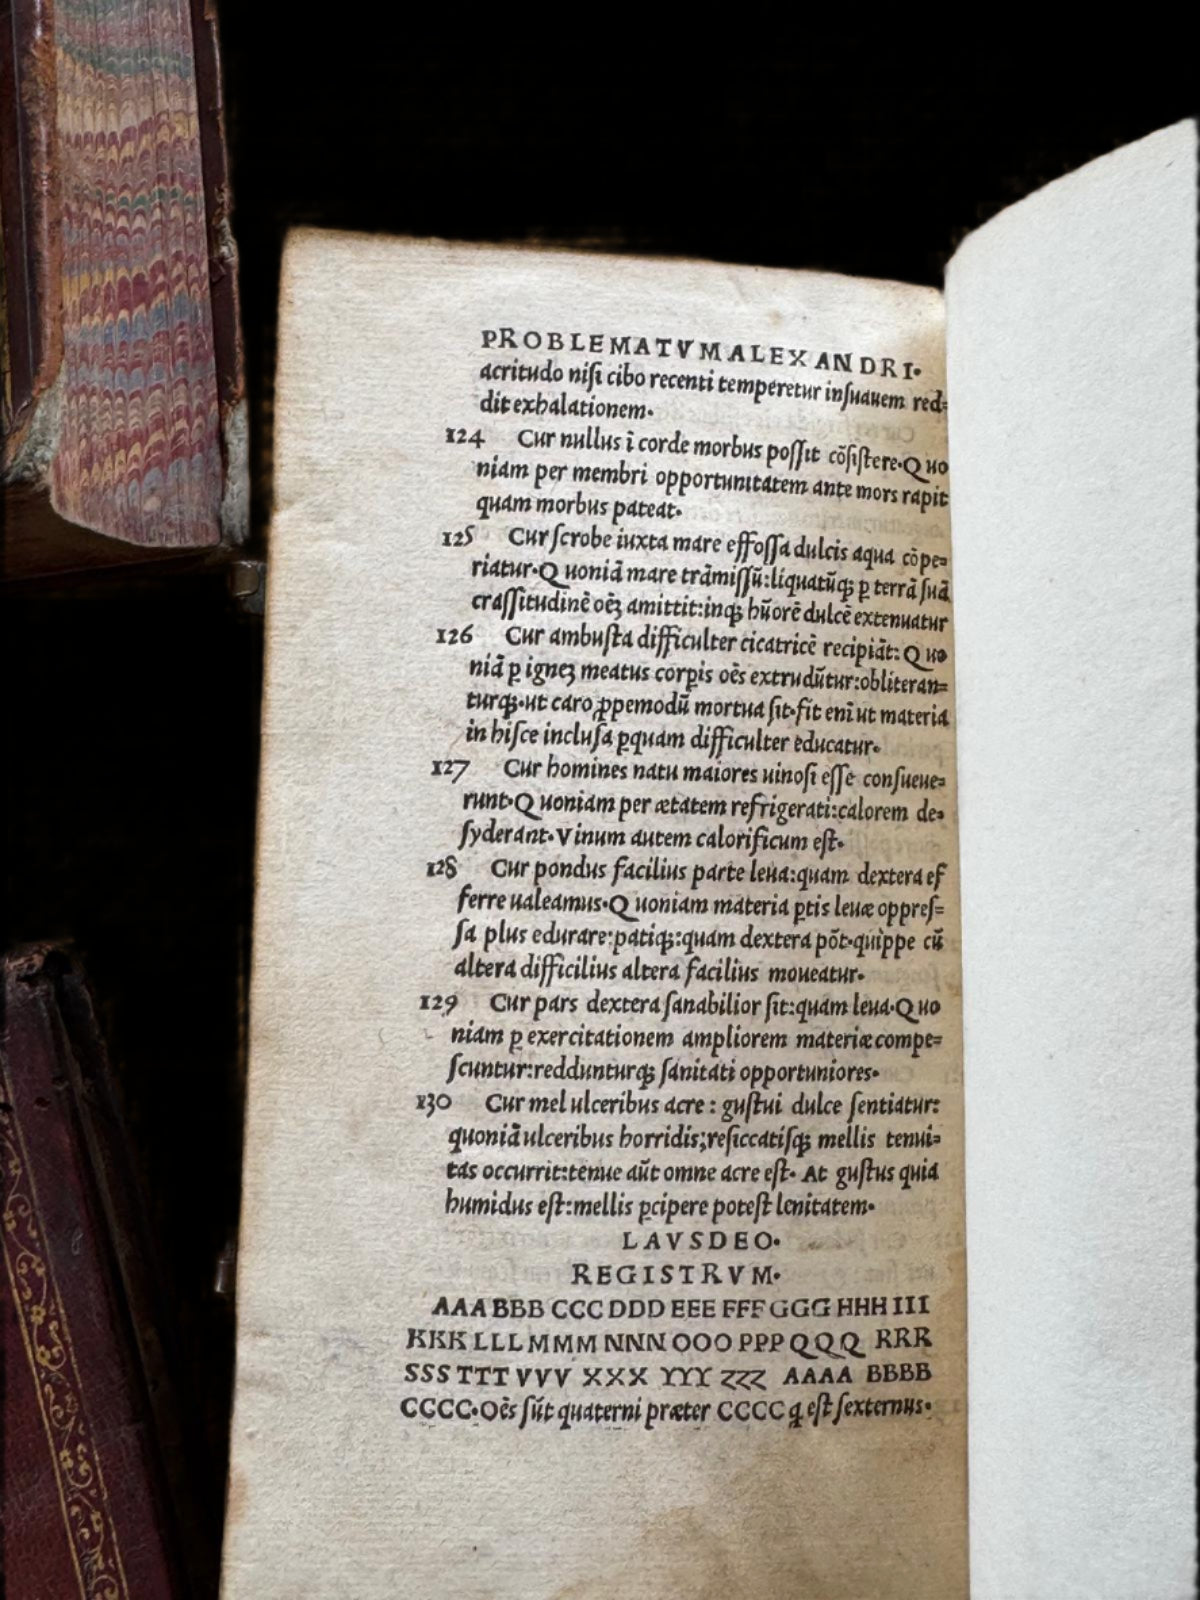 PROBLEMATVM ALEXANDRI.
acritudo nisi cibo recenti temperetur insuauem red=
dit exhalationem.
124 Cur nullus ī corde morbus possit cōsistere. Quo
niam per membri opportunitatem ante mors rapit
quam morbus pateat.
125 Cur scrobe iuxta mare effossa dulcis aqua cōpe=
riatur. Quoniā mare trāmissū: liquatūqꝫ ꝑ terrā suā
crassitudinē oēꝫ amittit: inqꝫ hūorē dulcē extenuatur
126 Cur ambusta difficulter cicatricē recipiāt: Quo
niā ꝑ igneꝫ meatus corꝑis oēs extrudūtur: obliteran=
turqꝫ. ut caro ꝓpemodū mortua sit. fit enī ut materia
in hisce inclusa ꝑquam difficulter educatur.
127 Cur homines natu maiores uinosi esse consueue=
runt. Quoniam per ætatem refrigerati: calorem de=
syderant. Vinum autem calorificum est.
128 Cur pondus facilius parte leua: quam dextera ef
ferre ualeamus. Quoniam materia ꝑtis leuæ oppres=
sa plus edurare: patiqꝫ: quam dextera pōt. quippe cū
altera difficilius altera facilius moueatur.
129 Cur pars dextera sanabilior sit: quam leua. Quo
niam ꝑ exercitationem ampliorem materiæ compe=
scuntur: reddunturqꝫ sanitati opportuniores.
130 Cur mel ulceribus acre: gustui dulce sentiatur:
quoniā ulceribus horridis; resiccatisqꝫ mellis tenui=
tas occurrit: tenue aūt omne acre est. At gustus quia
humidus est: mellis ꝑcipere potest lenitatem.
LAVS DEO.
REGISTRVM.
AAA BBB CCC DDD EEE FFF GGG HHH III
KKK LLL MMM NNN OOO PPP QQQ RRR
SSS TTT VVV XXX YYY ZZZ AAAA BBBB
CCCC. Oēs sūt quaterni præter CCCC ꝗ est sexternus.